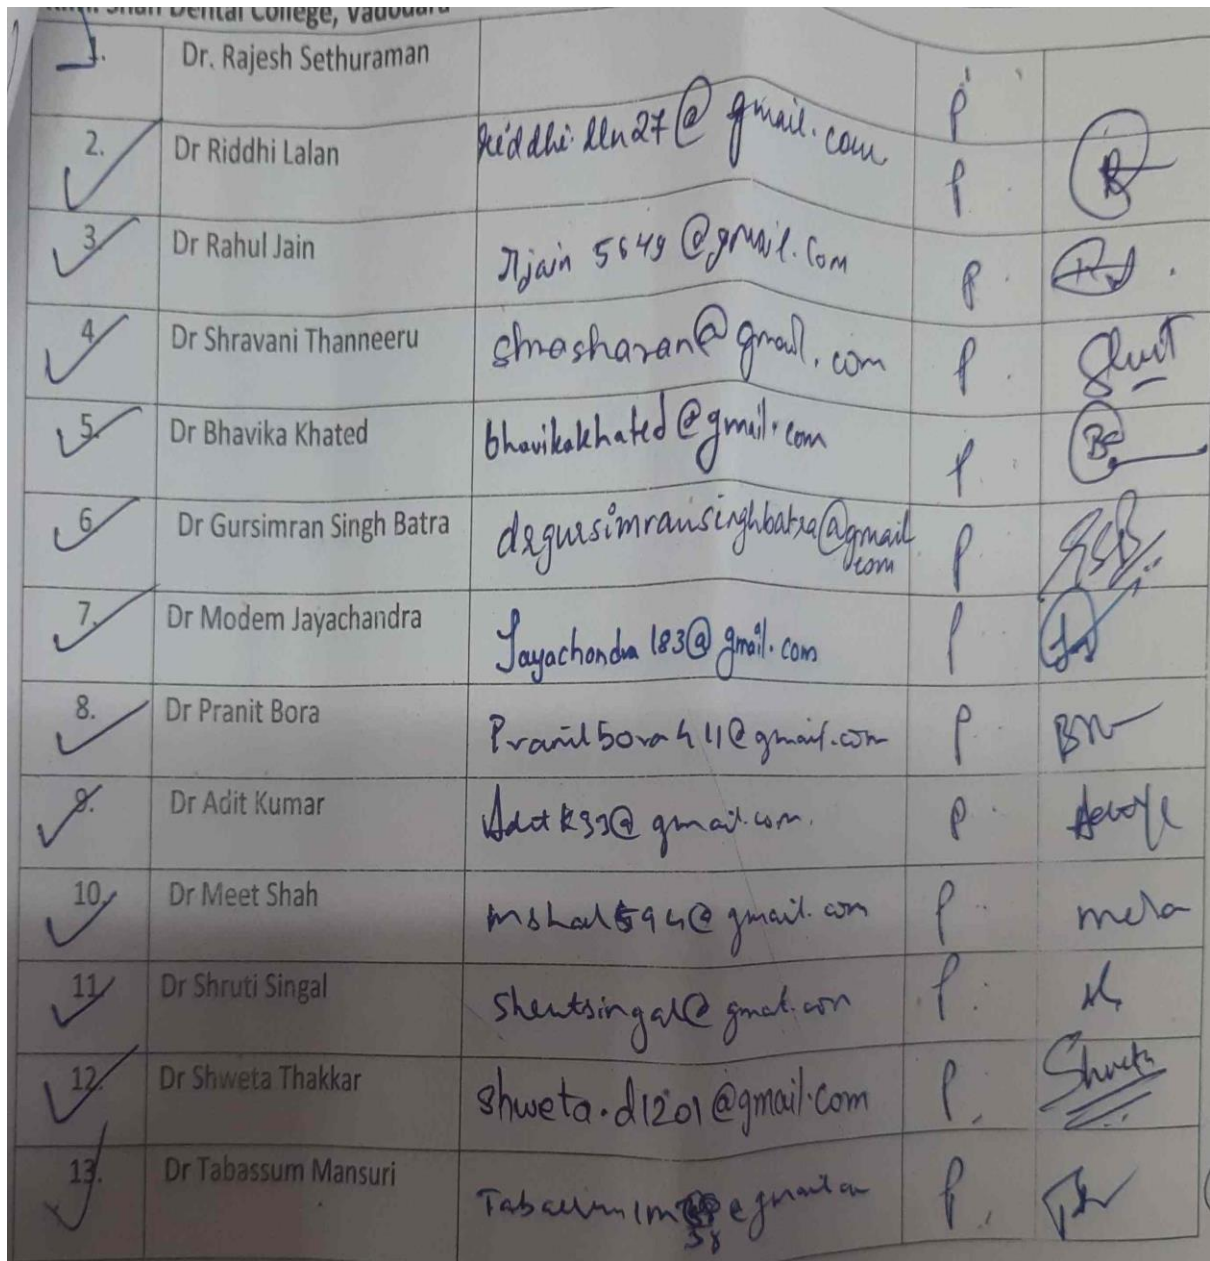 Shah Dental College, Vadodara
1. Dr. Rajesh Sethuraman P
2. Dr Riddhi Lalan riddhi.lln27@gmail.com P
3. Dr Rahul Jain rjain5649@gmail.com P
4. Dr Shravani Thanneeru @gmail.com P
5. Dr Bhavika Khated bhavikakhated@gmail.com P
6. Dr Gursimran Singh Batra drgursimransinghbatra@gmail
.com P
7. Dr Modem Jayachandra Jayachandra183@gmail.com P
8. Dr Pranit Bora Pranitbora411@gmail.com P
9. Dr Adit Kumar @gmail.com. P
10. Dr Meet Shah @gmail.com P
11. Dr Shruti Singal P
12. Dr Shweta Thakkar shweta.d1201@gmail.com P Shweta
13. Dr Tabassum Mansuri P